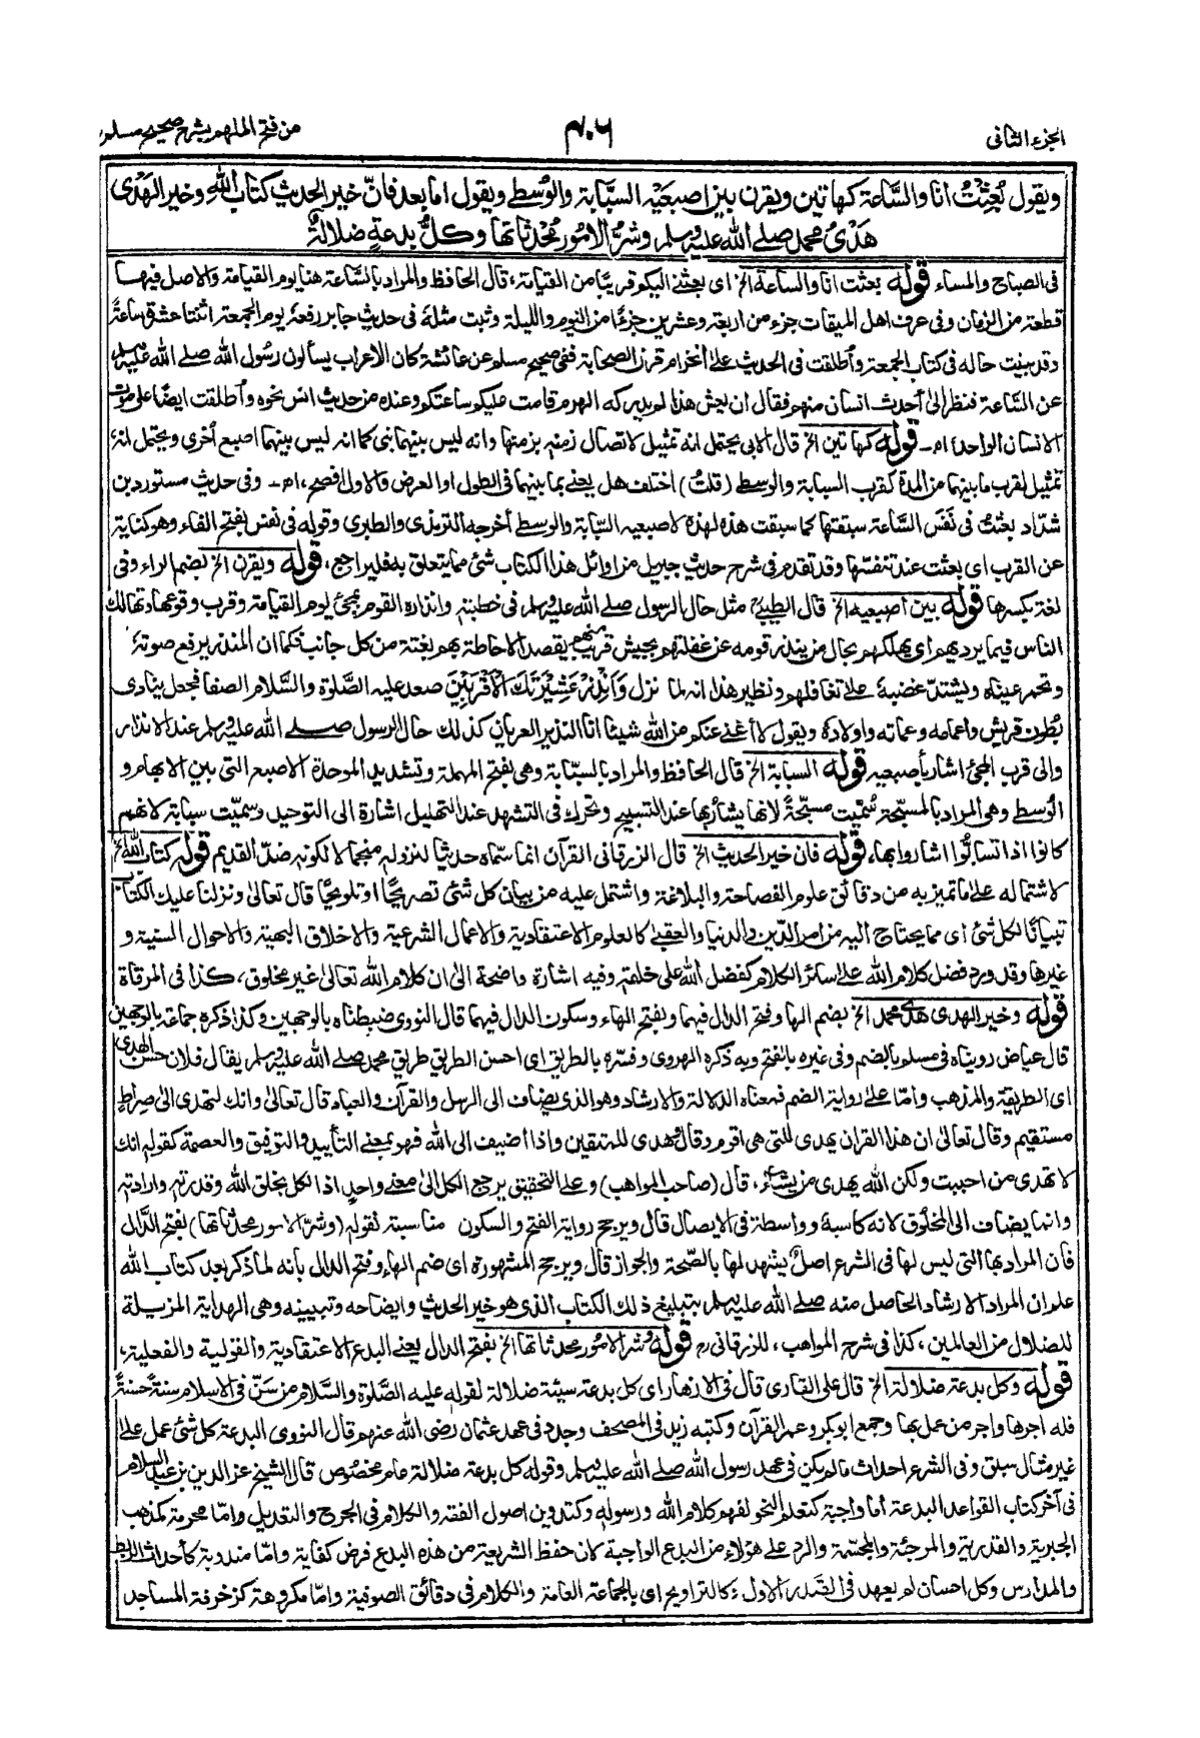 الجزء الثانی
۴۰۶
من فتح الملهم بشرح صحيح مسلم
ويقول بُعِثْتُ انا والسَّاعة كهاتين ويقرن بين اصبعيه السبَّابة والوُسطے ويقول اما بعد فانّ خير الحديث كتاب الله وخير الهَدْى
هَدْىُ محمد صلے الله عليه وسلم وشرُّ الامور مُحْدَثاتها وكلُّ بدعةٍ ضلالةٌ
فى الصباح والمساء قوله بعثت انا والساعة الخ اى بعثنى اليكم قريبًا من القيامة، قال الحافظ والمراد بالسَّاعة هنا يوم القيامة والاصل فيها
قطعة من الزمان وفى عرف اهل الميقات جزء من اربعة وعشرين جزءًا من اليوم والليلة وثبت مثله فى حديث جابر رفعهٗ يوم الجمعة اثنتا عشرة ساعةً
وقد بينت حاله فى كتاب الجمعة وأطلقت فى الحديث علے انخرام قرن الصحابة ففى صحيح مسلم عن عائشة كان الاعراب يسألون رسول الله صلے الله عليه وسلم
عن السَّاعة فنظر الىٰ أحدث انسان منهم فقال ان يعش هذا لم يدركه الهرم قامت عليكم ساعتكم وعنده من حديث انس نحوه وأطلقت ايضًا على موت
الانسان الواحد، اه‍ـ قوله كهاتين الخ قال الابى يحتمل انه تمثيل لاتصال زمنه بزمنها وانه ليس بينهما نبى كما انه ليس بينهما اصبع أخرى ويحتمل انهٗ
تمثيل لقرب ما بينهما من المدة كقرب السبابة والوسطے (قلتُ) اختلف هل يعنے بما بينهما فى الطول او العرض والاول افصح، اه‍ـ وفى حديث مستورد بن
شدّاد بعثتُ فى نَفَسِ السَّاعة سبقتها كما سبقت هذه لهذه لاصبعيه السّبّابة والوسطے أخرجه الترمذى والطبرى وقوله فى نفس بفتح الفاء وهو كناية
عن القرب اى بعثت عند تنفسّها وقد تقدم فى شرح حديث جبريل من اوائل هذا الكتاب شئ مما يتعلق به فليراجع، قوله ويقرن الخ بضم الراء وفى
لغة بكسرها قوله بين اصبعيه الخ قال الطيبى مثل حال الرسول صلے الله عليه وسلم فى خطبته وانذاره القوم بمجئ يوم القيامة وقرب وقوعها وتهالك
الناس فيما يرديهم اى يهلكهم بحال من ينذر قومه عن غفلتهم بجيش قريب منهم يقصد الاحاطة بهم بغتة من كل جانب فكما ان المنذر يرفع صوتهٗ
وتحمر عيناه ويشتدّ غضبهٗ علےٰ تغافلهم ونظير هذا انه لما نزل وَاَنْذِرْ عَشِيْرَتَكَ الْاَقْرَبِيْنَ صعد عليه الصَّلاة والسَّلام الصفا فجعل ينادى
بُطُون قريش واعمامه وعماته واولاده ويقول لا أغنى عنكم من الله شيئًا أنا النذير العريان كذلك حال الرسول صلے الله عليه وسلم عند الانذار
والى قرب المجئ اشار بأصبعيه قوله السبابة الخ قال الحافظ والمراد بالسبّابة وهى بفتح المهملة وتشديد الموحدة الاصبع التى بين الابهام و
الوسطے وهى المراد بالمسبّحة سُمِّيت مسبّحةً لانها يشار بها عند التسبيح وتحرك فى التشهد عند التهليل اشارة الى التوحيد وسميّت سبابة لانهم
كانوا اذا تسابُّوا اشاروا بها، قوله فان خير الحديث الخ قال الزرقانى القرآن انما سمّاه حديثا لنزوله منجما لا لكونه ضدّ القديم قوله كتاب الله الخ
لاشتماله علےٰ ما تميز به من دقائق علوم الفصاحة والبلاغة واشتمل عليه من بيان كل شئ تصريحًا او تلويحًا قال تعالىٰ ونزلنا عليك الكتاب
تبيانًا لكل شئ اى مما يحتاج اليه من امر الدّين والدنيا والعقبىٰ كالعلوم الاعتقادية والاعمال الشرعية والاخلاق البهية والاحوال السنية و
غيرها وقد ورد فضل كلام الله علےٰ سائر الكلام كفضل الله على خلقه وفيه اشارة واضحة الىٰ ان كلام الله تعالىٰ غير مخلوق، كذا فى المرقاة
قوله وخير الهدى هدى محمد الخ بضم الهاء وفتح الدال فيهما وبفتح الهاء وسكون الدال فيهما قال النووى ضبطناه بالوجهين وكذا ذكره جماعة بالوجهين
قال عياض رويناه فى مسلم بالضم وفى غيره بالفتح وبه ذكره الهروى وفسّره بالطريق اى احسن الطريق طريق محمد صلے الله عليه وسلم يقال فلان حسن الهدى
اى الطريقة والمذهب وامّا علےٰ رواية الضم فمعناه الدلالة والارشاد وهو الذى يضاف الى الرسل والقرآن والعباد قال تعالىٰ وانك لتهدى الىٰ صراطٍ
مستقيم وقال تعالىٰ ان هذا القرآن يهدى للتى هى اقوم وقال هُدى للمتقين واذا أضيف الى الله فهو بمعنے التأييد والتوفيق والعصمة كقوله انك
لا تهدى من احببت ولكن الله يهدى من يشاء، قال (صاحب المواهب) وعلے التحقيق يرجع الكل الىٰ معنے واحدٍ اذ الكل بخلق الله وقدرته وارادته
وانما يضاف الى المخلوق لانه كاسبه وواسطة فى الايصال قال ويرجح رواية الفتح والسكون مناسبته لقوله (وشرّ الامور محدثاتها) بفتح الدَّال
فان المراد بها التى ليس لها فى الشرع اصلٌ يشهد لها بالصّحة والجواز قال ويرجح المشهورة اى ضم الهاء وفتح الدال بأنه لما ذكر بعد كتاب الله
علم ان المراد الارشاد الحاصل منه صلے الله عليه وسلم بتبليغ ذلك الكتاب الذى هو خير الحديث وايضاحه وتبيينه وهى الهداية المزيلة
للضلال من العالمين، كذا فى شرح المواهب، للزرقانى رح قوله وشر الامور محدثاتها الخ بفتح الدال يعنے البدع الاعتقادية والقولية والفعلية،
قوله وكل بدعة ضلالة الخ قال على القارى قال فى الازهار اى كل بدعة سيئة ضلالة لقوله عليه الصَّلوة والسَّلام من سَنّ فى الاسلام سنةً حسنةً
فله اجرها واجر من عمل بها وجمع ابوبكر وعمر القرآن وكتبه زيد فى المصحف وجدد فى عهد عثمان رضى الله عنهم قال النووى البدعة كل شئ عمل علےٰ
غير مثال سبق وفى الشرع احداث ما لم يكن فى عهد رسول الله صلے الله عليه وسلم وقوله كل بدعة ضلالة عام مخصوص قال الشيخ عز الدين بن عبد السلام
فى آخر كتاب القواعد البدعة أما واجبة كتعلم النحو لفهم كلام الله ورسوله وكتدوين اصول الفقه والكلام فى الجرح والتعديل وامّا محرمة كمذهب
الجبرية والقدرية والمرجئة والمجسّمة والرد علےٰ هؤلاء من البدع الواجبة لان حفظ الشريعة من هذه البدع فرض كفاية وامّا مندوبة كأحداث الربط
والمدارس وكل احسان لم يعهد فى الصّدر الاول، وكالتراويح اى بالجماعة العامة والكلام فى دقائق الصوفية وامّا مكروهة كزخرفة المساجد